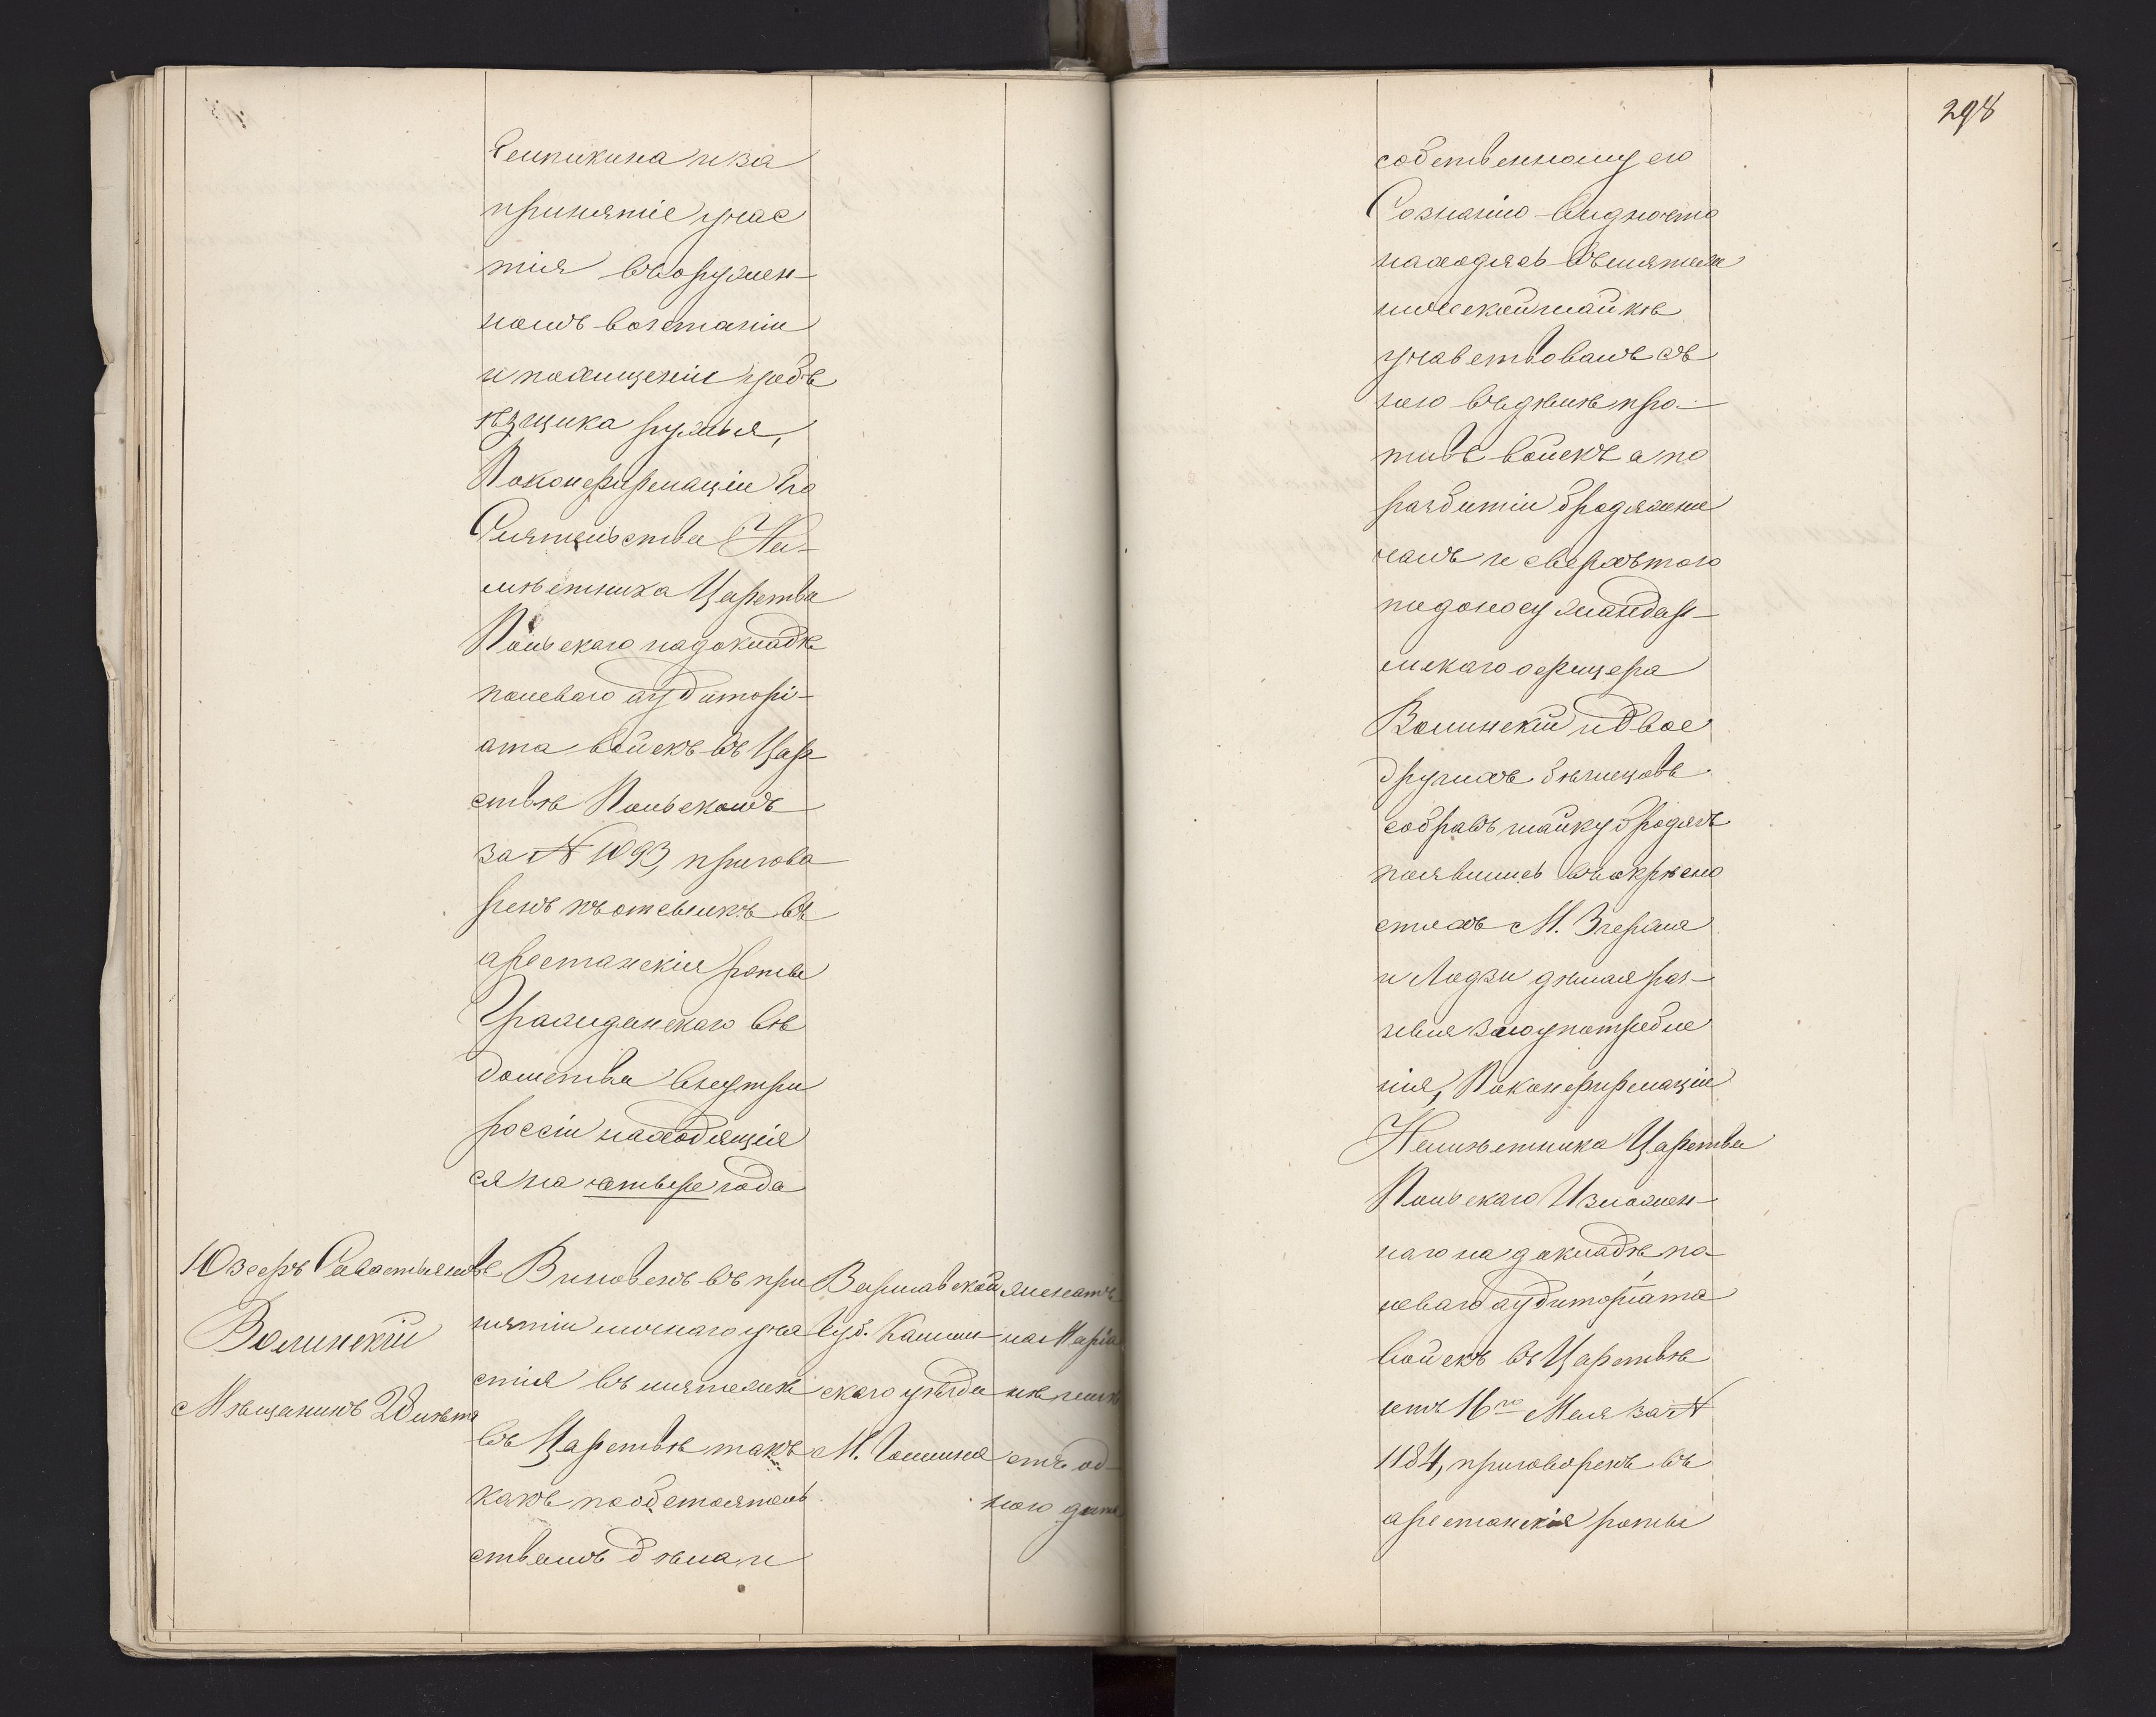 принятіе учас
тія въ воружен-
номъ возстаніи
и похищеніи уобъ
ѣзщика ружья,
По конфирмаціи Его
Сіятельства На-
мѣстника Царства
Польскаго на докладѣ
полеваго аудиторі-
ата войскъ въ Цар-
ствѣ Польскомъ
за № 1093, пригово
ренъ къ отсылкѣ въ
арестанскія роты
Гражданскаго вѣ
домства внутри
россіи находящія
ся на четыре года
Юзефъ Савастьяновъ
Волинскій
Мѣщанинъ 28 лѣтъ
Виновенъ въ при
нятіи личнаго уча
стія въ мятежѣ
въ Царствѣ такъ
какъ по обстоятель
ствамъ дѣла и
Варшавской
Губ. Калиш-
скаго уѣзда
М.
женатъ
на Маріа
нѣ
отъ од-
ного дитя
298
собственному его
Сознанію видно что
находясь въ мятеж
нической шайкѣ
учавствовалъ съ
нею въ дѣлѣ про-
тивъ войскъ а по
разбитіи бродяжни
чалъ и сверхъ того
по доносу жандар-
мскаго офицера
Волинскій и двое
другихъ бѣглецовъ
собравъ шайку бродягъ
появились въ окрѣсно
стяхъ М. Згержа
и Лодзи дѣлая раз-
ныя злоупотребле
нія, По конфирмаціи
Намѣстника Царства
Польскаго Изложен-
наго на докладѣ по-
леваго аудиторіата
войскъ въ Царствѣ
отъ 16го Мая за №
1184, приговоренъ въ
арестанскія роты